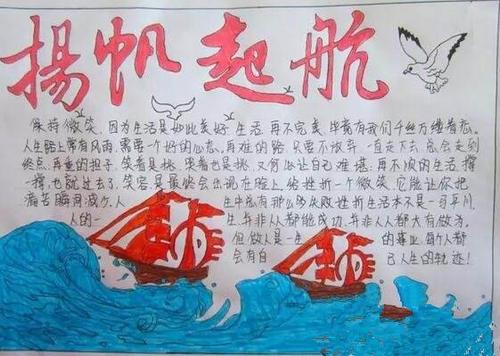 揚帆起航
保持微笑,因为生活是如此美好.生活,再不完美,毕竟有我们千丝万缕着恋.
人生路上常有风雨,需要一个好的心态,再难的路,只要不放弃,一直走下去,总会走到
终点,再重的担子,笑着是挑,哭着也是挑,又何必让自己难堪;再不顺的生活,撑一
撑,也就过去了,笑容是最终会出现在脸上,给挫折一个微笑,它能让你把
痛苦瞬间减 个人 生中能有那么多失败挫折生活本不是一马平川
人的一 生,并非人人都能成功,并非人人都大有做为.
但做人是一生 的事业,每个人都
会有自 己人生的轨迹!